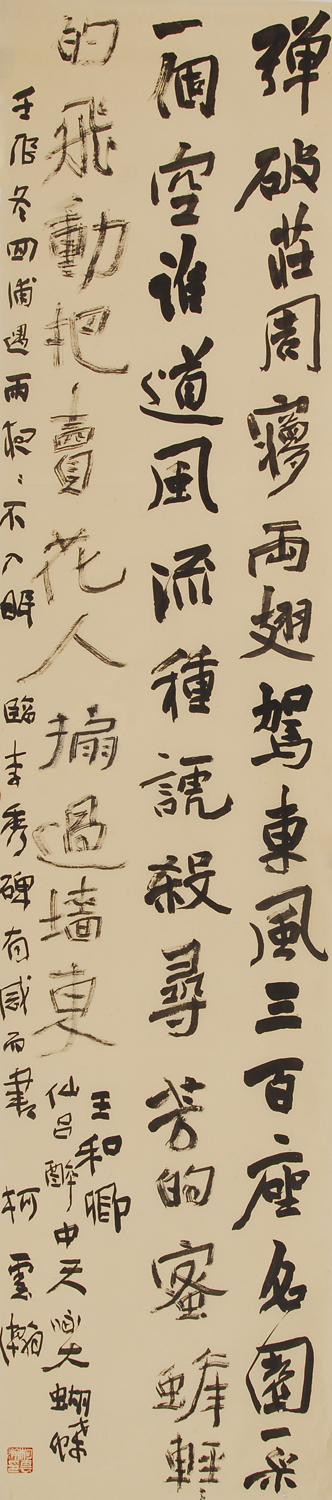 弹破莊周寢两翅驾東風三百座名園一采
一個空谁道風流種諕殺尋芳的蜜蜂輕〻
的飛動把賣花人搧過墻東
王和卿
仙吕醉中天咏大蝴蝶
壬辰冬四浦遇雨夜〻不入眠 臨李秀碑有感而書 柯雲瀚